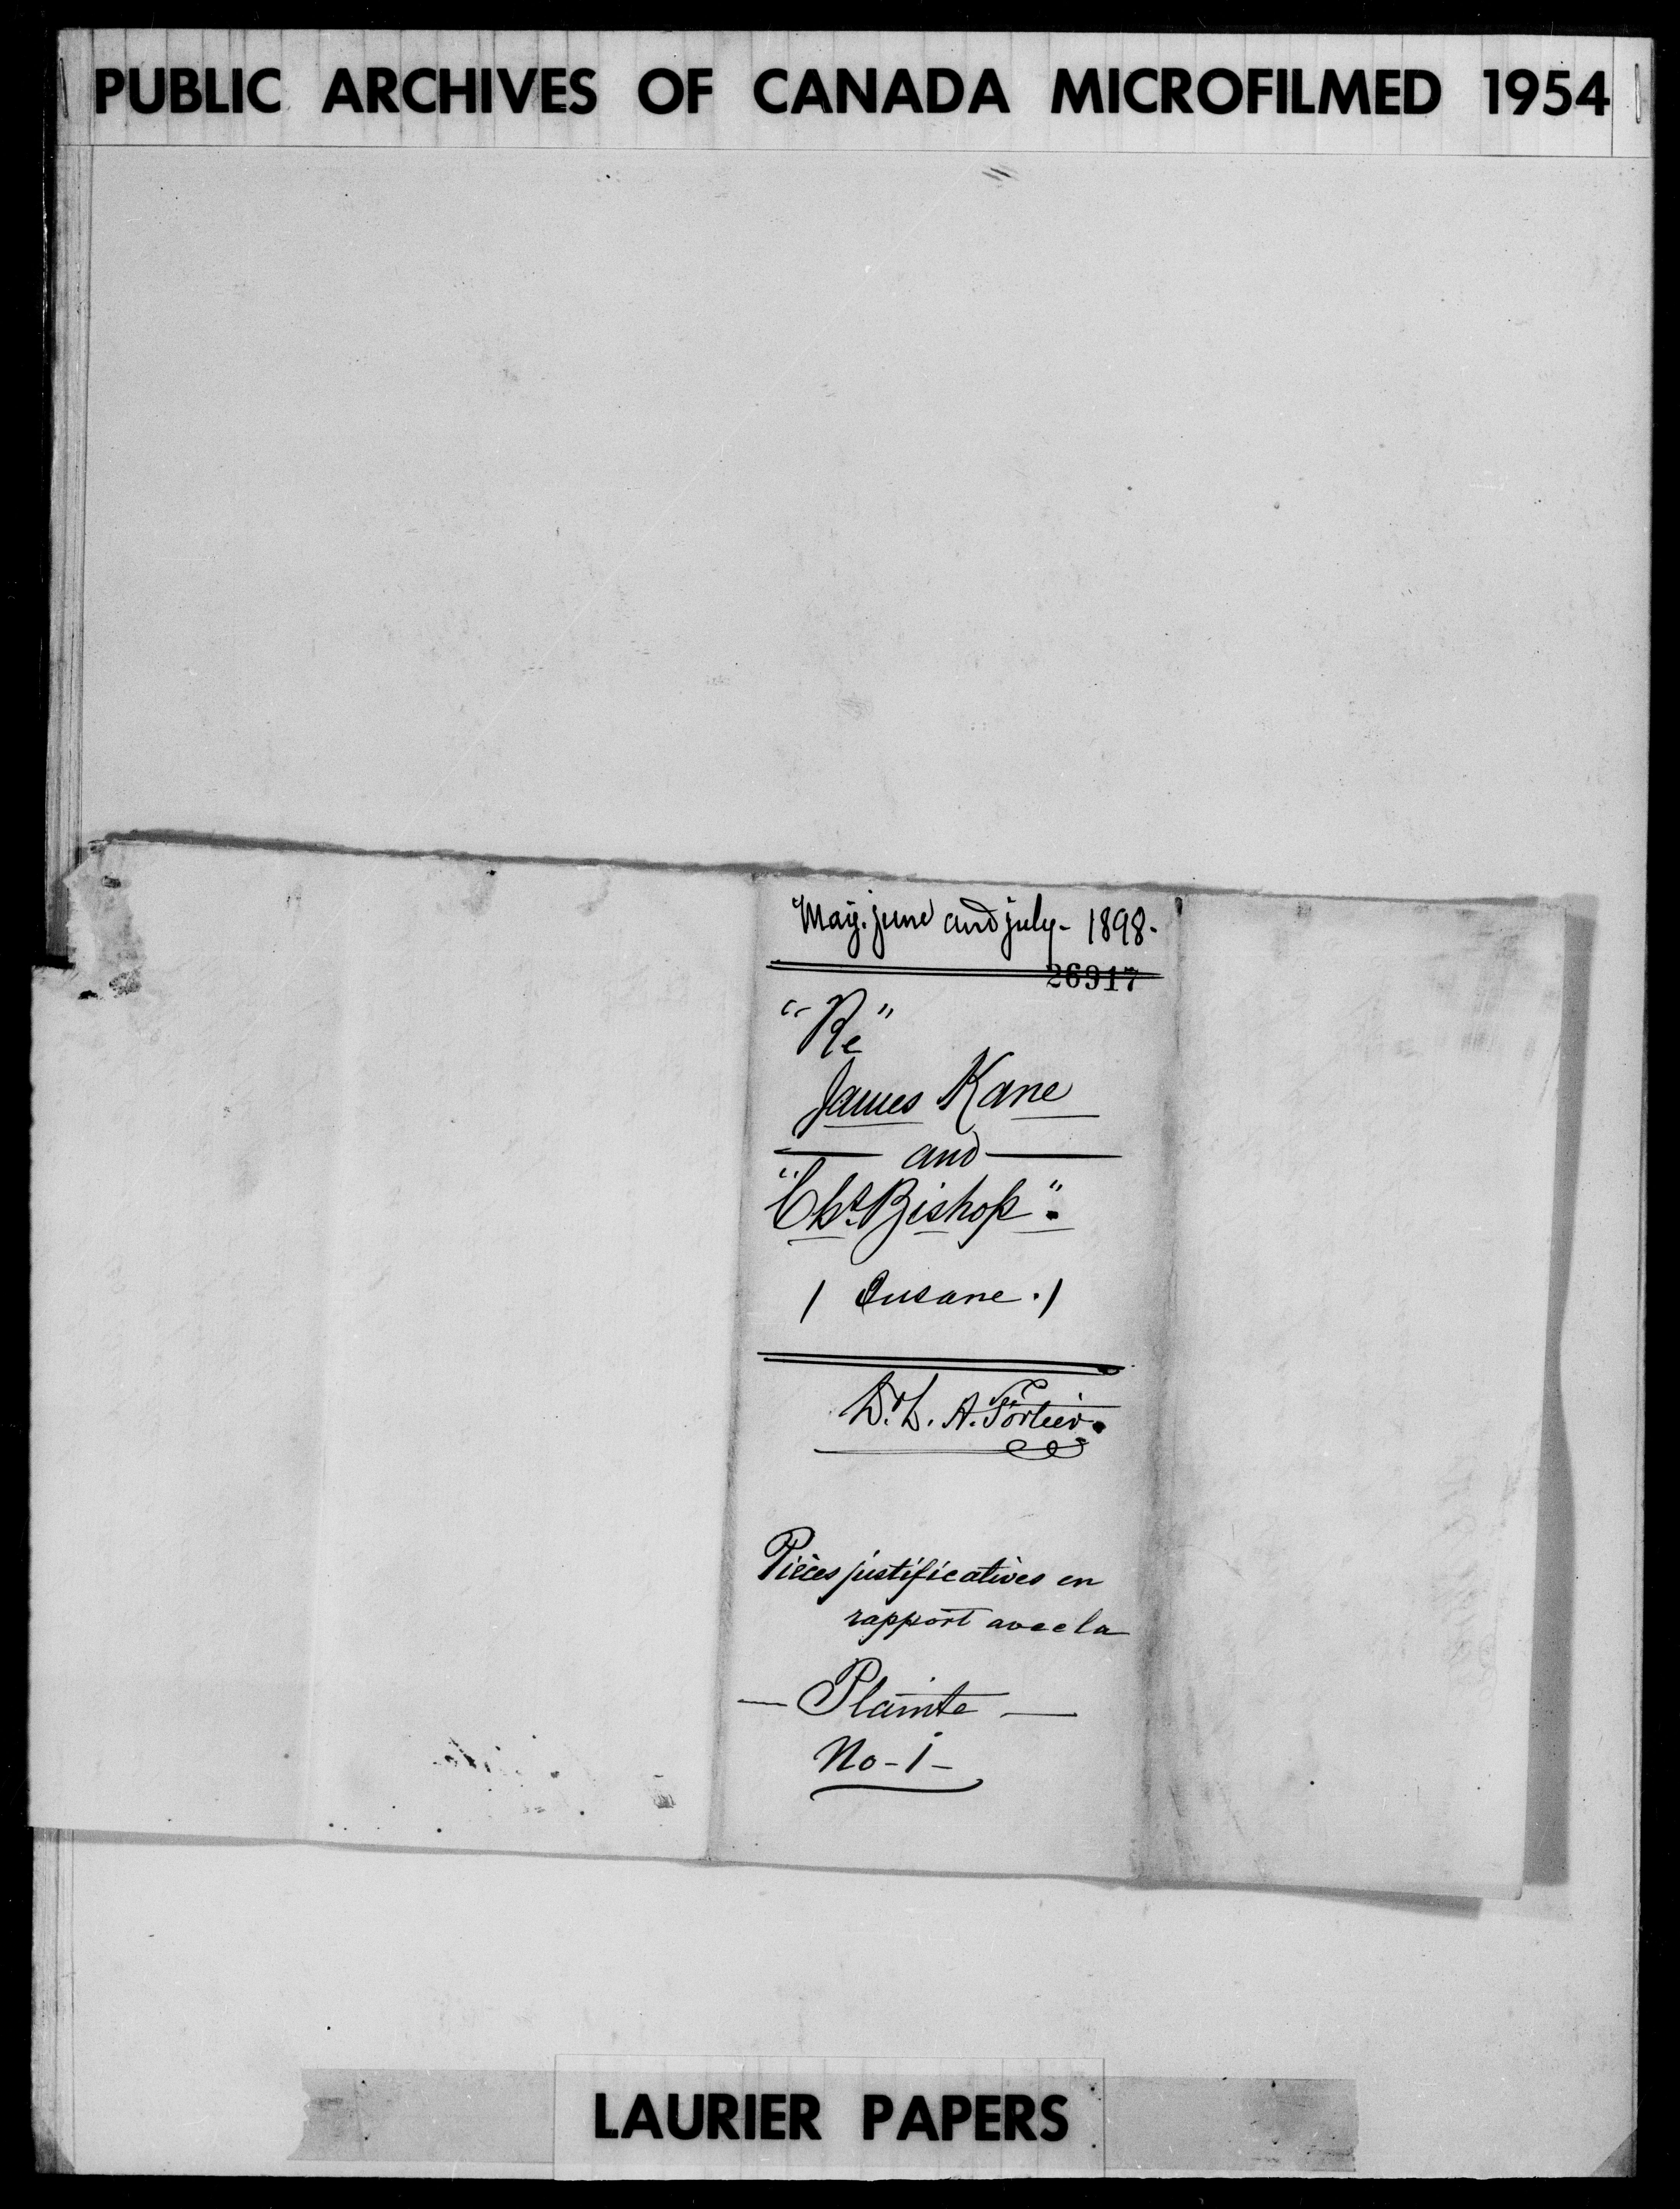 PUBLIC ARCHIVES OF CANADA MICROFILMED 1954
May. june and july - 1898.
26917
"Re"
James Kane
and
"Chs. Bishop".
( Insane. )
Dr. L. A. Fortier.
Pièces justificatives en
rapport avec la
— Plainte —
No - 1 -
LAURIER PAPERS